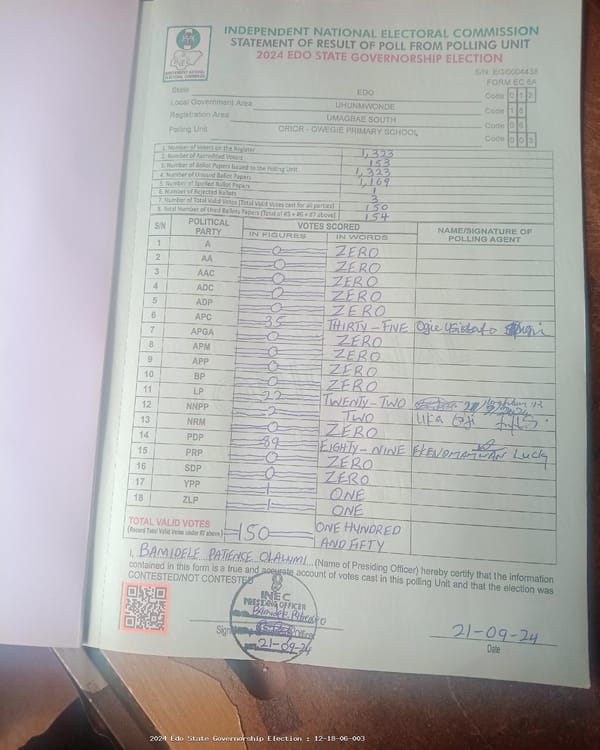 INDEPENDENT NATIONAL ELECTORAL COMMISSION
STATEMENT OF RESULT OF POLL FROM POLLING UNIT
2024 EDO STATE GOVERNORSHIP ELECTION
S/N: EG/0004438
FORM EC 8A
State EDO Code 0 1 2
Local Government Area UHUNMWONDE Code 1 8
Registration Area UMAGBAE SOUTH Code 0 6
Polling Unit ORIOR - OWEGIE PRIMARY SCHOOL Code 0 0 3
1. Number of Voters on the Register 1,323
2. Number of Accredited Voters 153
3. Number of Ballot Papers Issued to the Polling Unit 1,323
4. Number of Unused Ballot Papers 1,169
5. Number of Spoiled Ballot Papers 1
6. Number of Rejected Ballots 3
7. Number of Total Valid Votes (Total Valid Votes cast for all parties) 150
8. Total Number of Used Ballots Papers (Total of #5 + #6 + #7 above) 154
S/N POLITICAL PARTY VOTES SCORED IN FIGURES IN WORDS NAME/SIGNATURE OF POLLING AGENT
1 A 0 ZERO
2 AA 0 ZERO
3 AAC 0 ZERO
4 ADC 0 ZERO
5 ADP 0 ZERO
6 APC 35 THIRTY-FIVE
7 APGA 0 ZERO
8 APM 0 ZERO
9 APP 0 ZERO
10 BP 0 ZERO
11 LP 22 TWENTY-TWO
12 NNPP 2 TWO
13 NRM 0 ZERO
14 PDP 89 EIGHTY-NINE Lucky
15 PRP 0 ZERO
16 SDP 0 ZERO
17 YPP 1 ONE
18 ZLP 1 ONE
TOTAL VALID VOTES
(Record Total Valid Votes under #7 above) 150 ONE HUNDRED AND FIFTY
I, BAMIDELE PATIENCE OLALUMI (Name of Presiding Officer) hereby certify that the information
contained in this form is a true and accurate account of votes cast in this polling Unit and that the election was
CONTESTED/NOT CONTESTED
INEC
PRESIDING OFFICER
21-09-24
21-09-24
Date
2024 Edo State Governorship Election : 12-18-06-003